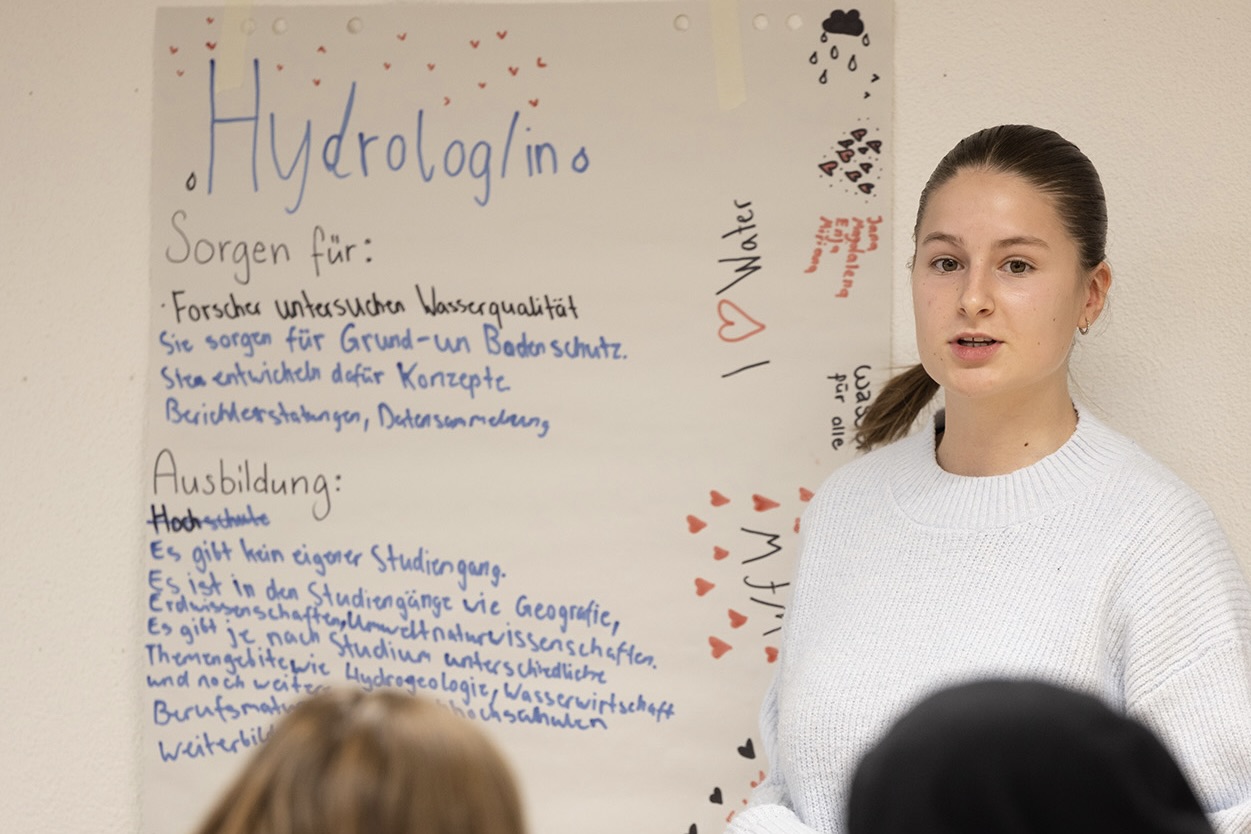 Hydrolog/in
Sorgen für:
· Forscher untersuchen Wasserqualität
Sie sorgen für Grund-un Bodenschutz.
entwickeln dafür Konzepte
Berichterstatungen, Datensammelung
Ausbildung:
Hochschule
Es gibt kein eigener Studiengang.
Es ist in den Studiengänge wie Geografie,
Erdwissenschaften, Umweltnaturwissenschaften.
Es gibt je nach Studium unterschiedliche
Themengebite, wie Hydrogeologie, Wasserwirtschaft
und noch weitere
hochschulen
I ♥ Water
Magdalena
für alle